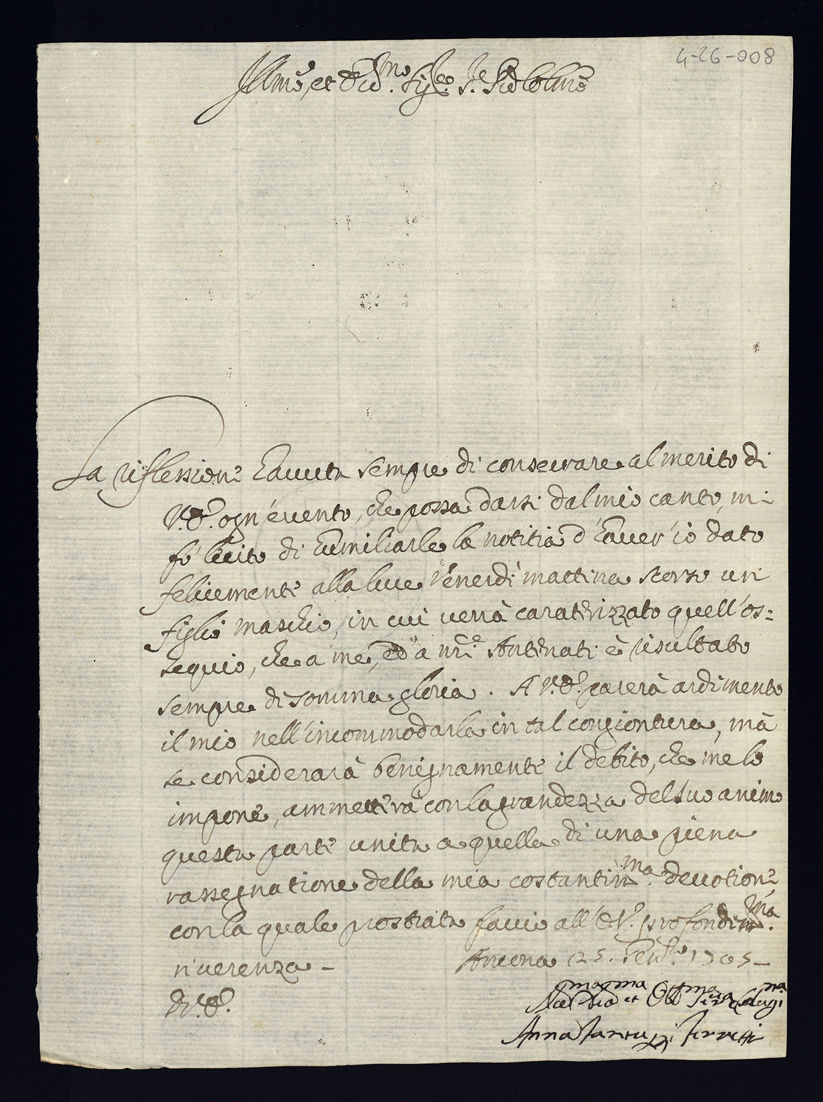 4-26-008
Ill.mo, et
La riflessione hauuta sempre di conseruare al merito di
V.E. ogn'euento, che possa darsi dal mio canto, mi
fà lecito di humiliarle la notitia d'hauer'io dato
felicemente alla luce Venerdi mattina scorso un
figlio maschio, in cui uerrà caraterizzato quell'os=
sequio, che a me, ed a nri Antenati è risultato
sempre di somma gloria. A V.E. parerà ardimento
il mio nell'incommodarla in tal congiontura, mà
se considerarà benignamente il debito, che me lo
impone, ammetterà con la grandezza del suo animo
questa parte unita a quella di una piena
rassegnatione della mia costantis.ma deuotione
con la quale prostrata faccio all'E.V. profondis.ma
riuerenza -
Ancona 25. 1705 -
V.E.
et
Anna Ferretti